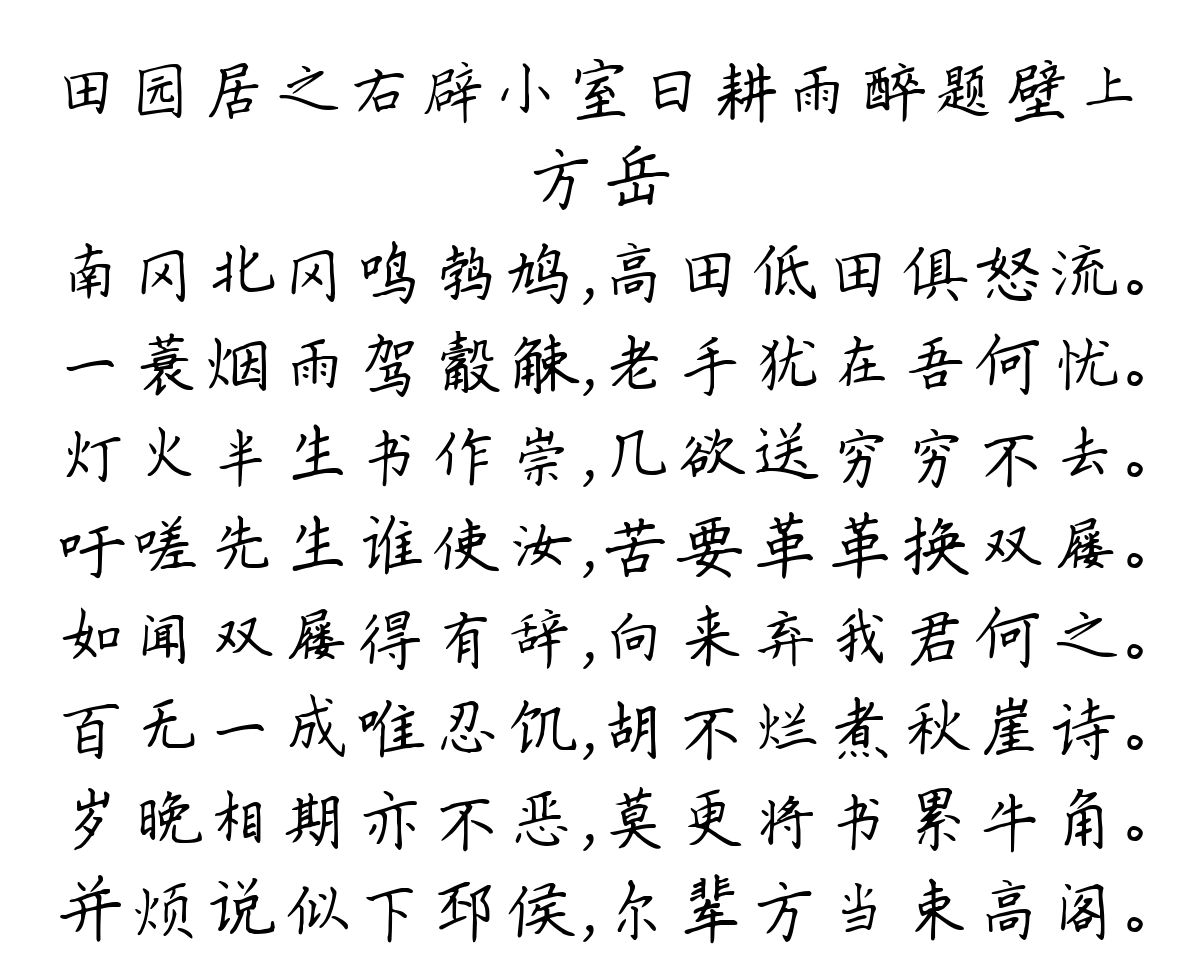 田园居之右辟小室日耕雨醉题壁上
方岳
南冈北冈鸣鹁鸠,高田低田俱怒流。
一蓑烟雨驾觳觫,老手犹在吾何忧。
灯火半生书作崇,几欲送穷穷不去。
吁嗟先生谁使汝,苦要革革换双屦。
如闻双屦得有辞,向来弃我君何之。
百无一成唯忍饥,胡不烂煮秋崖诗。
岁晚相期亦不恶,莫更将书累牛角。
并烦说似下邳侯,尔辈方当束高阁。